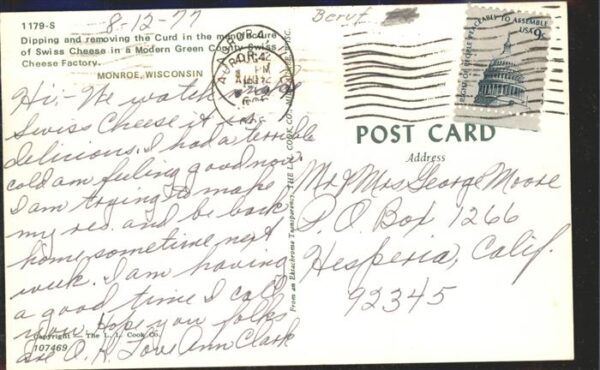 1179-S
8-12-77
Dipping and removing the Curd in the manufacture
of Swiss Cheese in a Modern Green County Swiss
Cheese Factory.
MONROE, WISCONSIN
Hi,- We watch
Swiss Cheese it is
delicious. I had a terrible
cold am feeling good now.
I am trying to make
my res. and be back
home sometime next
week. I am having
a good time I call
you. Hope you folks
are O.K. Love Ann Clark
Copyright - The L. L. Cook Co.
107469
From an Ektachrome Transparency, THE L.L. COOK CO., MILWAUKEE, WISC.
AURORA
PM
RIGHT OF PEOPLE PEACEABLY TO ASSEMBLE
USA 9c
POST CARD
Address
Mr & Mrs George Moore
P.O. Box 1266
Hesperia, Calif.
92345